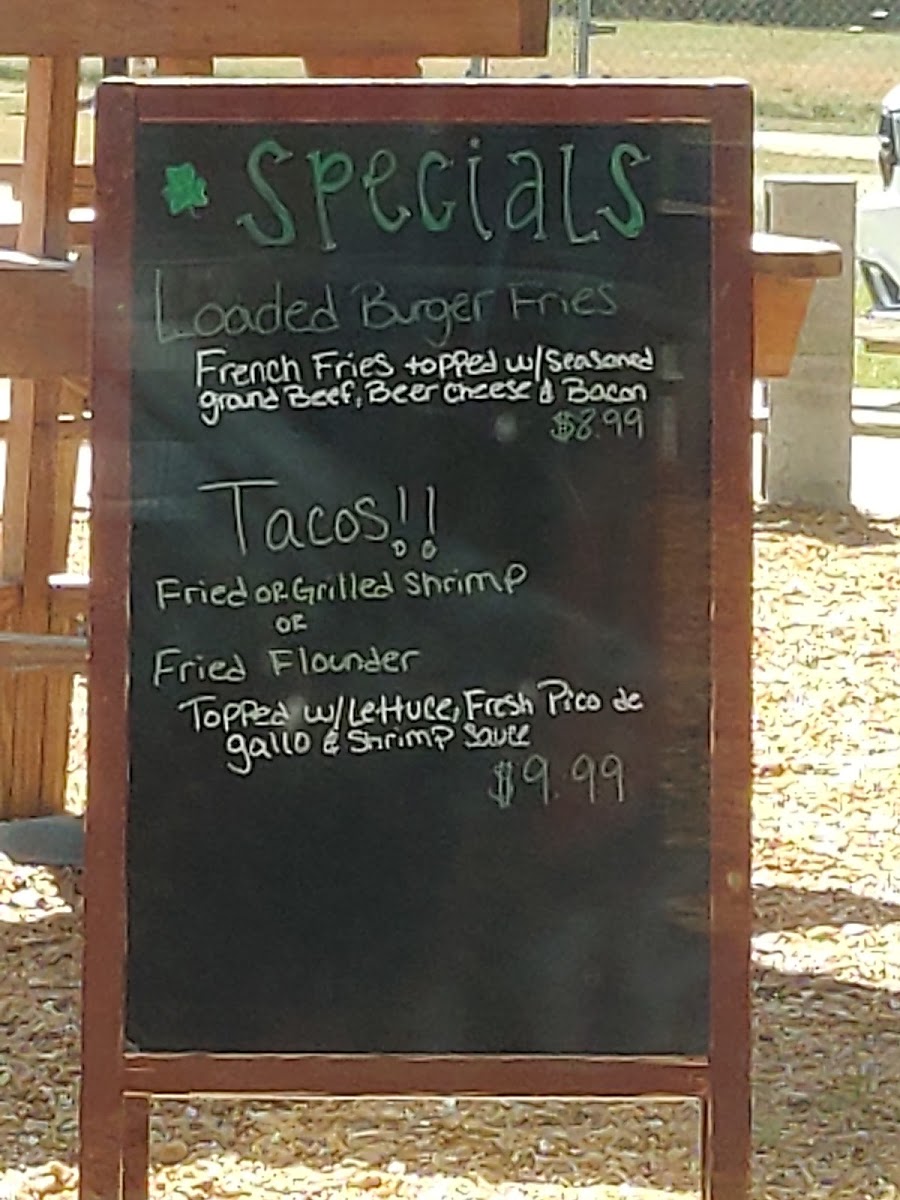 Specials
Loaded Burger Fries
French Fries topped w/ seasoned
ground Beef, Beer Cheese & Bacon
$8.99
Tacos!!
Fried or Grilled Shrimp
or
Fried Flounder
Topped w/ Lettuce, Fresh Pico de
gallo & Shrimp Sauce
$9.99